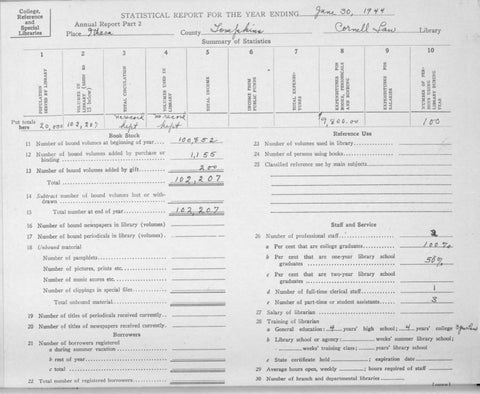 College, Reference and Special Libraries
STATISTICAL REPORT FOR THE YEAR ENDING June 30, 1944
Annual Report Part 2
Place Ithaca County Tompkins Cornell Law Library
Summary of Statistics
1 2 3 4 5 6 7 8 9 10
POPULATION SERVED BY LIBRARY
VOLUMES IN LIBRARY (ADDED BELOW)
TOTAL CIRCULATION
VOLUMES USED IN LIBRARY
TOTAL INCOME
INCOME FROM PUBLIC FUNDS
TOTAL EXPENDITURES
EXPENDITURES FOR BOOKS, PERIODICALS AND BINDING
EXPENDITURES FOR SALARIES
NUMBER OF PERSONS USING LIBRARY DURING YEAR
Put totals here 20,000 102,207 no record kept no record kept 9,800.00 100
Book Stock
11 Number of bound volumes at beginning of year 100,852
12 Number of bound volumes added by purchase or binding 1,155
13 Number of bound volumes added by gift 200
Total 102,207
14 Subtract number of bound volumes lost or withdrawn
15 Total number at end of year 102,207
16 Number of bound newspapers in library (volumes)
17 Number of bound periodicals in library (volumes)
18 Unbound material
Number of pamphlets
Number of pictures, prints etc.
Number of music scores etc.
Number of clippings in special files
Total unbound material
19 Number of titles of periodicals received currently
20 Number of titles of newspapers received currently
Borrowers
21 Number of borrowers registered
a during summer vacation
b rest of year
c total
22 Total number of registered borrowers
Reference Use
23 Number of volumes used in library
24 Number of persons using books
25 Classified reference use by main subjects
Staff and Service
26 Number of professional staff 2
a Per cent that are college graduates 100%
b Per cent that are one-year library school graduates 50%
c Per cent that are two-year library school graduates
d Number of full-time clerical staff 1
e Number of part-time or student assistants 3
27 Salary of librarian
28 Training of librarian
a General education: 4 years' high school; 4 years' college
b Library school or agency: weeks' summer library school;
weeks' training class; years' library school
c State certificate held ; expiration date
29 Average hours open, weekly ; hours required of staff
30 Number of branch and departmental libraries